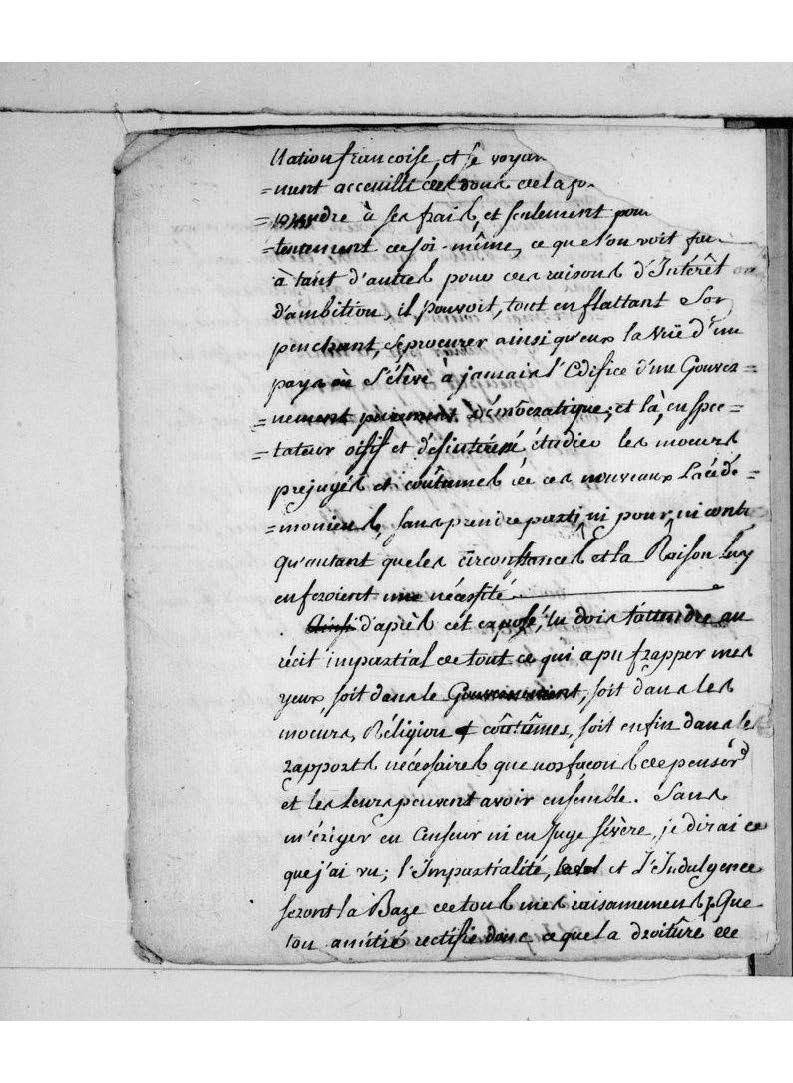 Nation françoise, et se voyan
=ment accueilli dès
=prendre à ses frais, et seulement pour
=tentement de soi-même, ce que l'on voit fai
à tant d'autres pour des raisons d'Intérêt ou
d'ambition, il pouvoit, tout en flattant Son
penchant, se procurer ainsi qu'eux la vuë d'un
pays où s'élève à jamais l'Edifice d'un Gouver=
=nement purement démocratique; et là, en spec=
=tateur oisif et désintéressé étudier les moeurs
préjugés et coûtumes de ces nouveaux Lacédé=
=moniens, sans prendre parti, ni pour, ni contre
qu'autant que les circonstances et la Raison luy
en feroient une nécessité.
Ainsi d'après cét exposé, tu dois t'attendre au
récit impartial de tout ce qui a pu frapper mes
yeux, soit dans le Gouvernement, soit dans les
moeurs, Réligion & coûtumes, soit enfin dans les
rapports nécessaires que nos façons de penser
et les leurs peuvent avoir ensemble. Sans
m'ériger en Censeur ni en Juge sévère, je dirai ce
que j'ai vu; l'Impartialité, et l'Indulgence
seront la Baze de tous mes raisonnemens; Que
ton amitié rectifie donc ce que la droitûre de